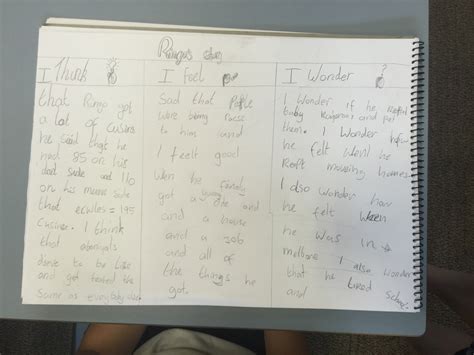 Ringo's story
I Think
that Ringo got
a lot of cusins
he said that he
had 85 on his
dad side and 110
on his mums side
that = 195
cusins. I think
that
to be
and got treated the
same as everybody
I feel
Sad that Peple
were being
to him and
I feelt good
wen he finaly
got a and
and a house
and a job
and all of
the things he
got.
I Wonder ?
I Wonder if he
baby and put
them. I Wonder how
he felt when he
kept moveing homes
I also Wonder how
he felt when
he was in
melbone I also wonder
that he liked school
and